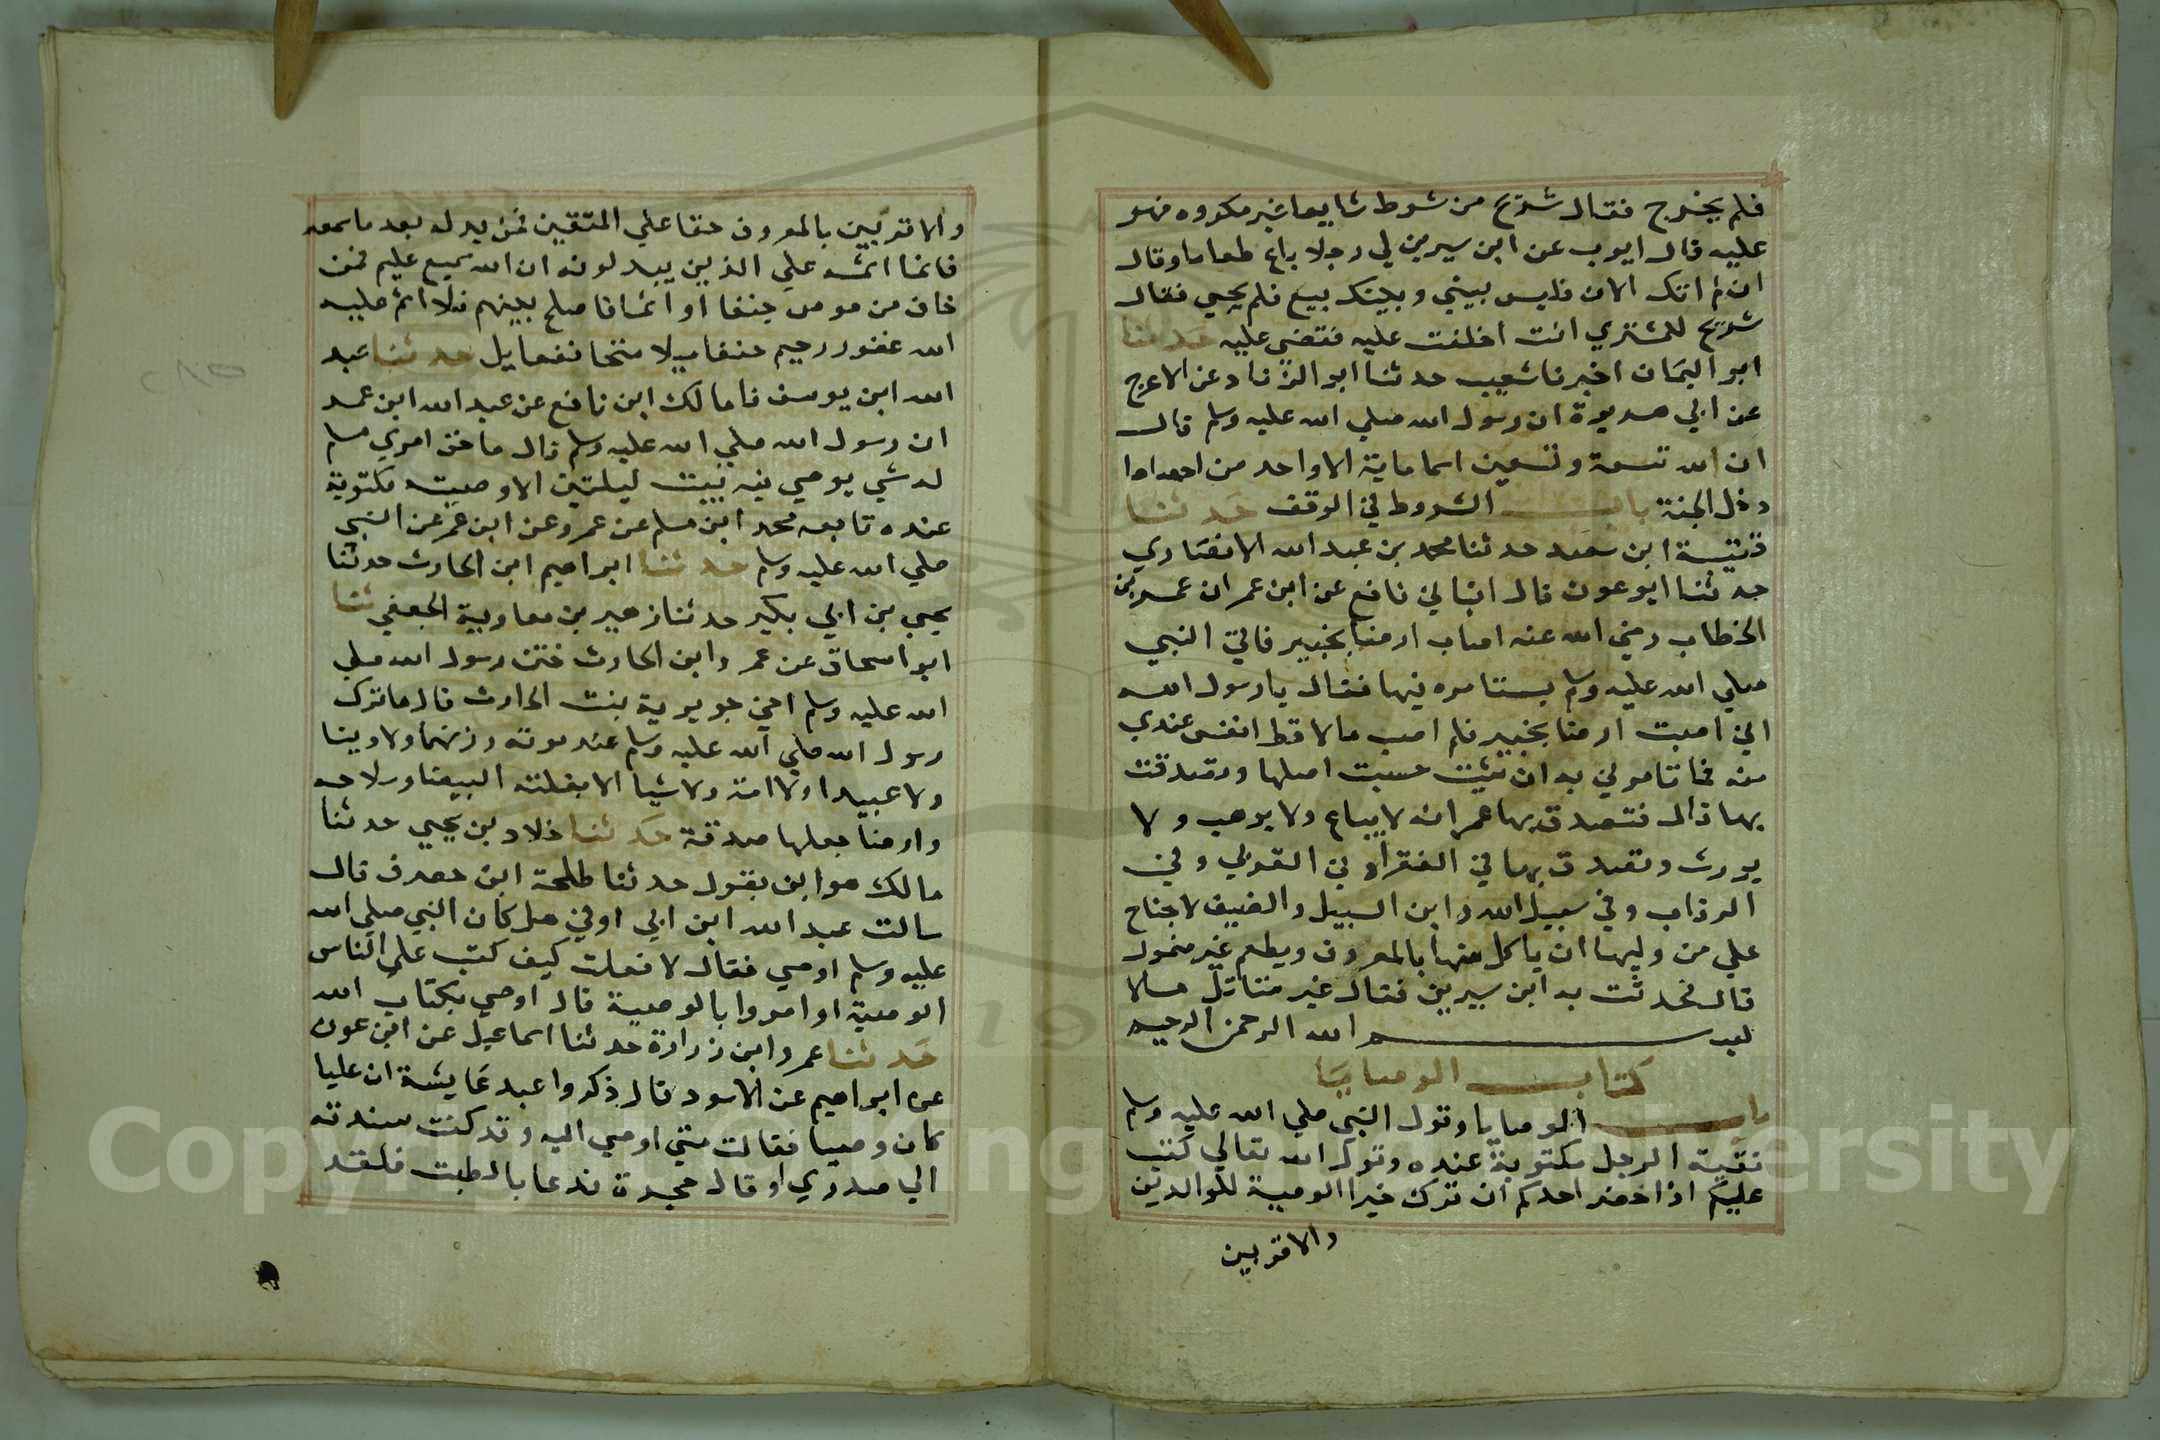 فلم يخرج فقال شريح من شرط شايعا غير مكروه فهو
عليه قال ايوب عن ابن سيرين لي رجلا باع طعاما وقال
ان لم اتك الان فليس بيني وبينك بيع فلم يجي فقال
شريح للمشتري انت اخلفت عليه فقضي عليه حدثنا
ابو اليمان اخبرنا شعيب حدثنا ابو الزناد عن الاعرج
عن ابي هريرة ان رسول الله صلي الله عليه وسلم قال
ان الله تسعة وتسعين اسما ماية الا واحد من احصاها
دخل الجنة باب الشروط في الوقف حدثنا
قتيبة ابن سعيد حدثنا محمد بن عبد الله الانصاري
حدثنا ابو عون قال انباني نافع عن ابن عمر ان عمر بن
الخطاب رضي الله عنه اصاب ارضا بخيبر فاتي النبي
صلي الله عليه وسلم يستامره فيها فقال يا رسول الله
اني اصبت ارضا بخيبر فلم اصب مالا قط انفس عندي
منه فما تامرني به ان شيت حبست اصلها وتصدقت
بها قال فتصدق بها عمر انه لا يباع ولا يوهب ولا
يورث وتصدق بها في الفقرا وفي القربي وفي
الرقاب وفي سبيل الله وابن السبيل والضيف لا جناح
علي من وليها ان ياكل منها بالمعروف ويطعم غير متمول
قال فحدثت به ابن سيرين فقال غير متاثل مالا
بسم الله الرحمن الرحيم
كتاب الوصايا
باب الوصايا وقول النبي صلي الله عليه وسلم
الرجل مكتوبة عنده وقول الله تعالي كتب
عليكم اذا حضر احدكم ان ترك خيرا الوصية للوالدين
والاقربين
والاقربين بالمعروف حقا علي المتقين فمن بدله بعد ما سمعه
فانما اثمه علي الذين يبدلونه ان الله سميع عليم فمن
خاف من موص جنفا او اثما فاصلح بينهم فلا اثم عليه
الله غفور رحيم جنفا ميلا متجانف مايل حدثنا عبد
الله ابن يوسف نا مالك ابن نافع عن عبد الله ابن عمر
ان رسول الله صلي الله عليه وسلم قال ما حق امري مسلم
له شي يوصي فيه يبيت ليلتين الا وصيته مكتوبة
عنده تابعه محمد ابن مسلم عن عمرو عن ابن عمر عن النبي
صلي الله عليه وسلم حدثنا ابراهيم ابن الحارث حدثنا
يحيي بن ابي بكير حدثنا زهير بن معاوية الجعفي ثنا
ابو اسحاق عن عمر وابن الحارث ختن رسول الله صلي
الله عليه وسلم اخي جويرية بنت الحارث قال ما ترك
رسول الله صلي الله عليه وسلم عند موته درهما ولا دينا
ولا عبيدا ولا امة ولا شيا الا بغلته البيضا وسلاحه
وارضا جعلها صدقة حدثنا خلاد بن يحيي حدثنا
مالك هو ابن بقول حدثنا طلحة ابن مصرف قال
سالت عبد الله ابن ابي اوفي هل كان النبي صلي الله
عليه وسلم اوصي فقال لا فقلت كيف كتب علي الناس
الوصية او امروا بالوصية قال اوصي بكتاب الله
حدثنا عمرو ابن زرارة حدثنا اسماعيل عن ابن عون
عن ابراهيم عن الاسود قال ذكروا عبد عايشة ان عليا
كان وصيا فقالت متي اوصي اليه وقد كنت مسندته
الي صدري او قال حجرة فدعا بالطبت فلقد
Copyright © King Saud University